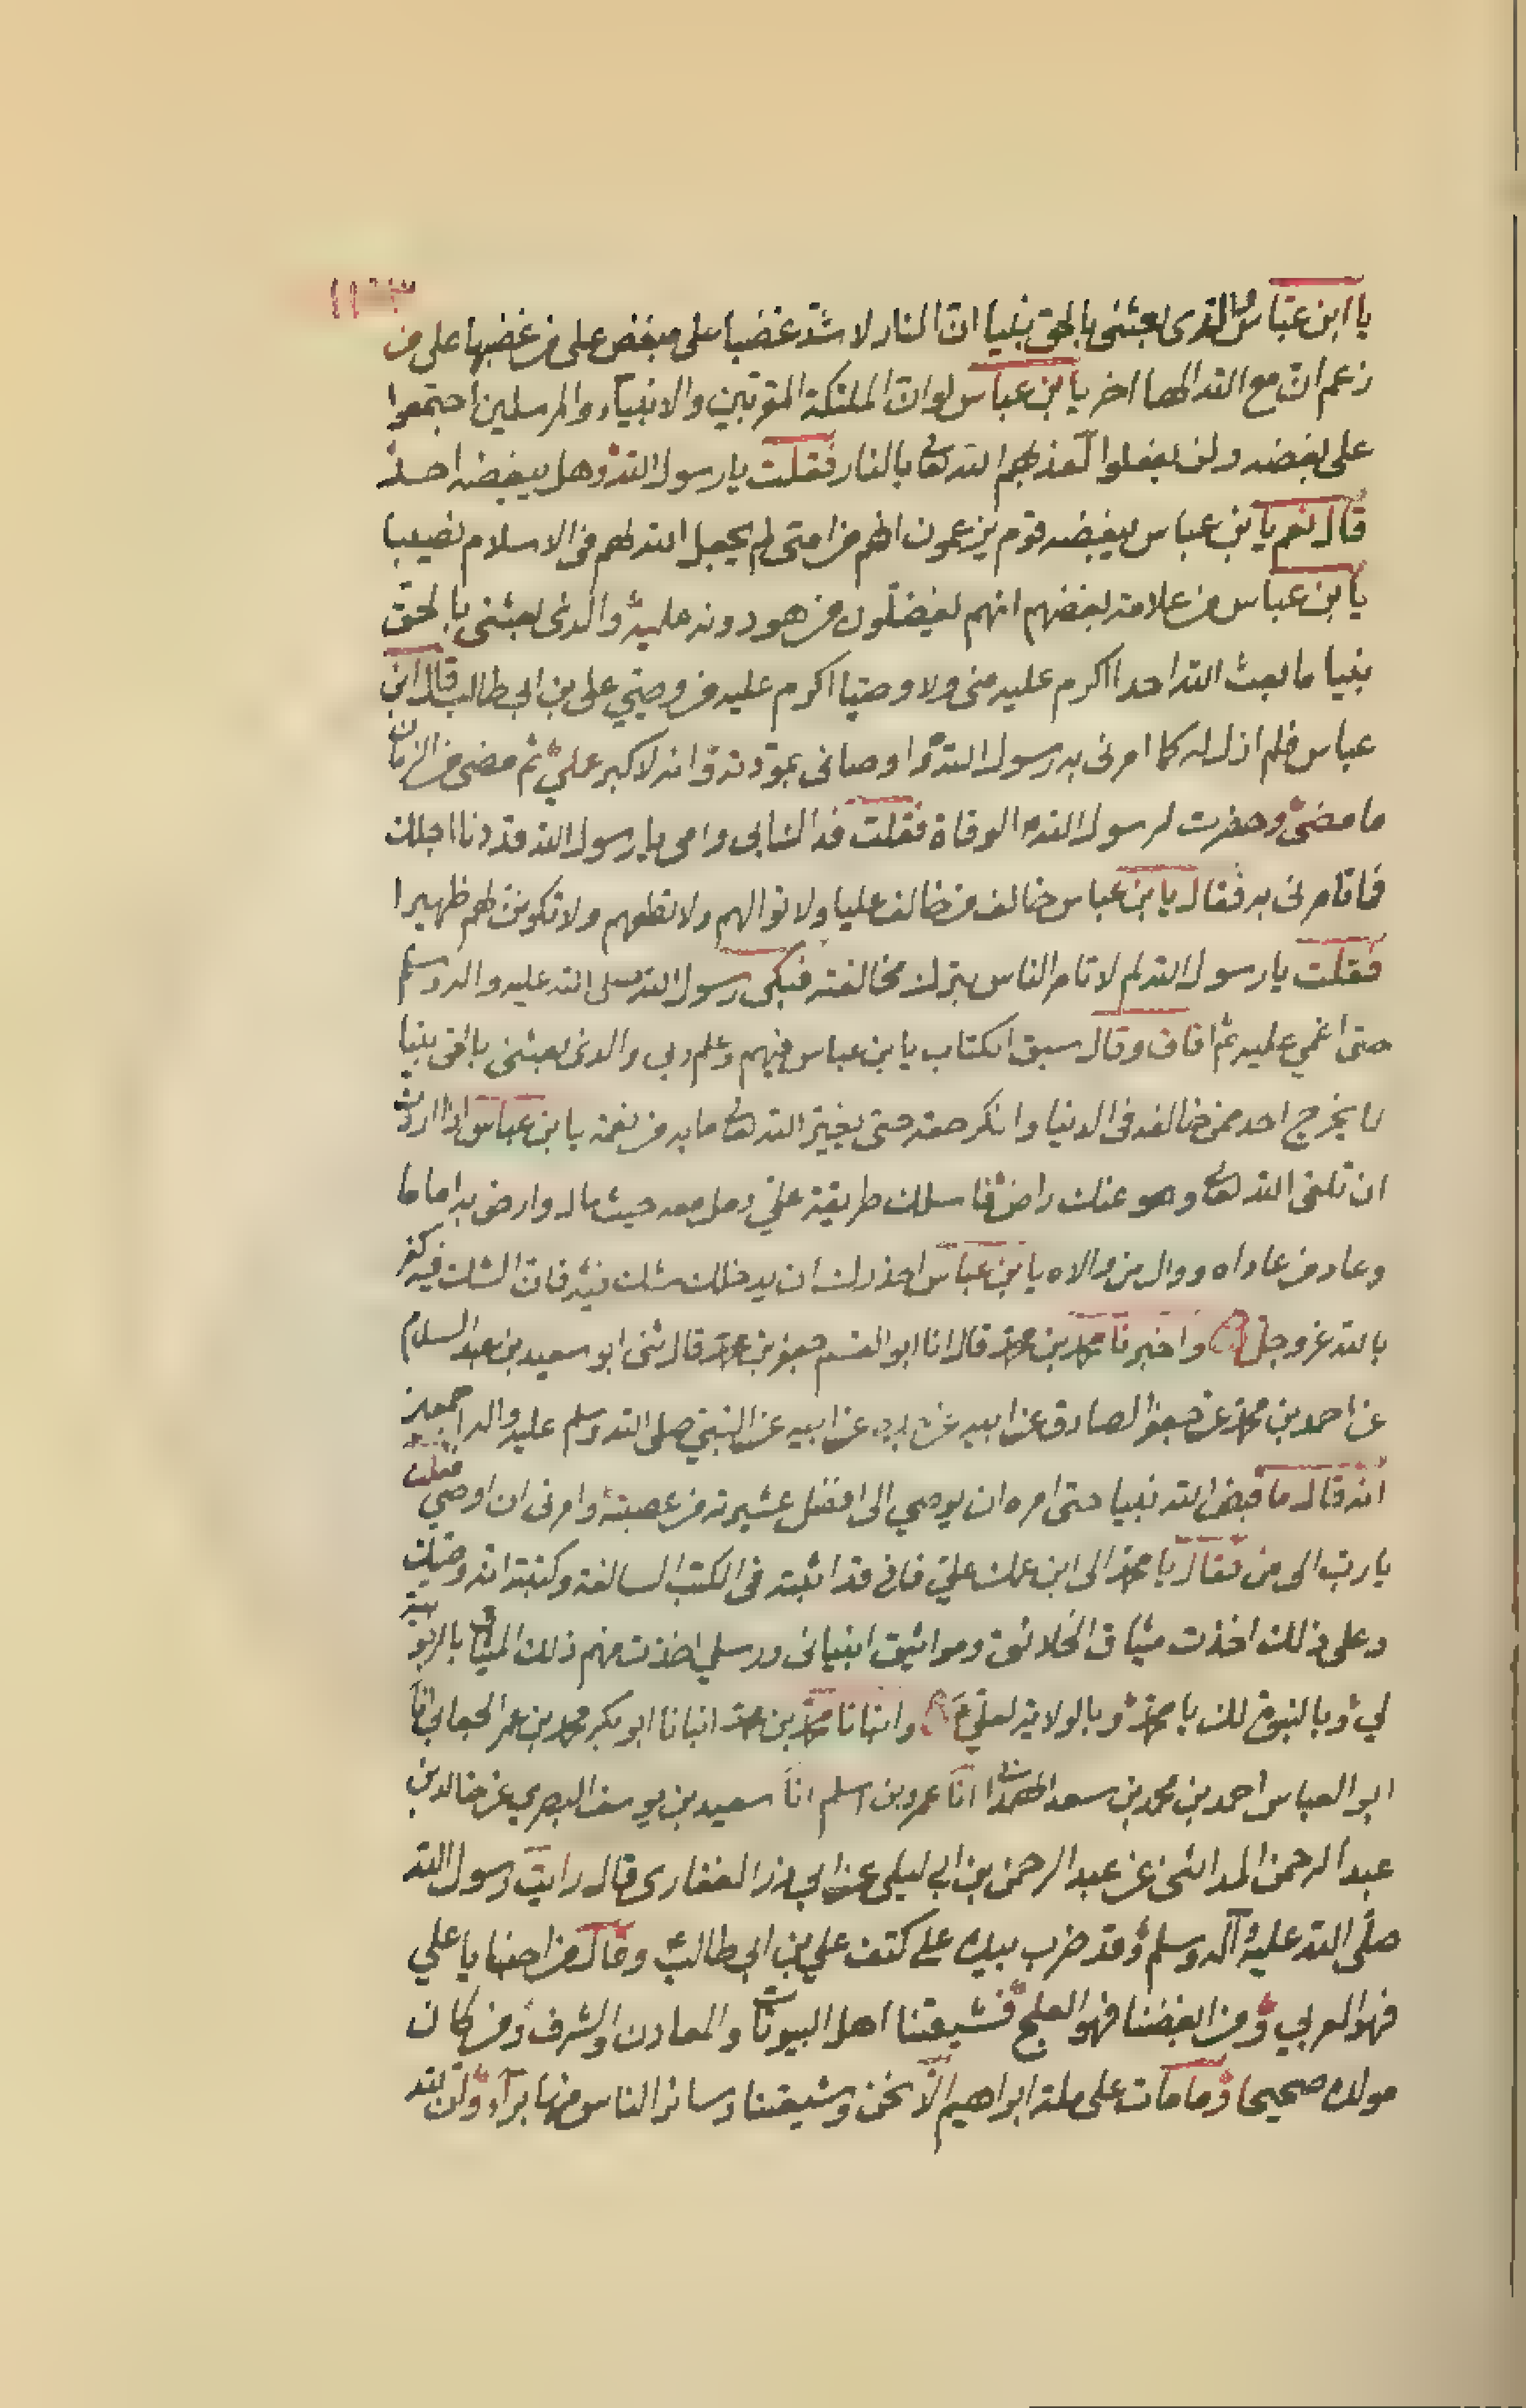 يا ابن عباس والذى بعثنى بالحق نبيا ان النار لاشد غضبا على مبغض على من غضبها على من
زعم ان مع الله الها اخر يا بن عباس لو ان الملئكة المقربين والانبياء والمرسلين اجتمعوا
على بغضه ولن يفعلوا لعذبهم الله تعالى بالنار فقلت يا رسول الله وهل يبغضه احد
قال نعم يا بن عباس يبغضه قوم يزعمون انهم من امتى لم يجعل الله لهم فى الاسلام نصيبا
يا بن عباس من علامة بغضهم انهم يفضلون من هو دونه عليه والذى بعثنى بالحق
نبيا ما بعث الله احدا اكرم عليه منى ولا وصيا اكرم عليه من وصيي على بن ابي طالب قال ابن
عباس فلم ازل له كما امرنى به رسول الله و اوصانى بمودته وانه لاكبر عملي ثم مضى من الزمان
ما مضى وحضرت لرسول الله الوفاة فقلت فداك ابى وامى يا رسول الله قد دنا اجلك
فما تامرنى به فقال يا بن عباس خالف من خالف عليا ولا توالهم ولا تطعهم ولا تكونن لهم ظهيرا
فقلت يا رسول الله لم لا تامر الناس بترك مخالفته فبكى رسول الله صلى الله عليه واله وسلم
حتى اغمي عليه ثم افاق وقال سبق الكتاب يا بن عباس فيهم وعلم ربي والذى بعثنى بالحق نبيا
لا يخرج احد ممن خالفه فى الدنيا وانكر حقه حتى يغير الله تعالى ما به من نعمة يا بن عباس اذا اردت
ان تلقى الله تعالى وهو عنك راض فاسلك طريقة علي ومل معه حيث مال وارض به اماما
وعاد من عاداه ووال من والاه يا بن عباس احذر ان يدخلك شك فيه فان الشك فيه كفر
بالله عز وجل واخبرنا محمد بن محمد قال انا ابو القسم جعفر بن محمد قال ثنى ابو سعيد بن عبد السلام
عن احمد بن محمد عن جعفر الصادق عن ابيه عن ابيه عن النبي صلى الله وسلم عليه واله اجمعين
انه قال ما قبض الله نبيا حتى امره ان يوصي الى افضل عشيرته من عصبته وامرنى ان اوصي فقلت
يا رب الى من فقال يا محمد الى ابن عمك علي فانى قد اثبته فى الكتب السالفة وكتبت انه وصيك
وعلى ذلك اخذت ميثاق الخلائق ومواثيق انبيائى ورسلي اخذت منهم ذلك الميثاق بالربوبية
لي وبالنبوة لك يا محمد وبالولاية لعلي وانبانا محمد بن محمد انبانا ابو بكر محمد بن عمر الجعابي انا
ابو العباس احمد بن محمد بن سعد الهمدانى انا عمرو بن اسلم انا سعيد بن يوسف البصري عن خالد بن
عبد الرحمن المدائنى عن عبد الرحمن بن ابي ليلى عن ابي ذر الغفارى قال رايت رسول الله
صلى الله عليه وآله وسلم وقد ضرب بيده على كتف علي بن ابي طالب وقال من احبنا يا علي
فهو العربي ومن ابغضنا فهو العلج فشيعتنا اهل البيوتات والمعادن والشرف ومن كان
مولده صحيحا وما مات على ملة ابراهيم الا نحن وشيعتنا وسائر الناس منها براء وان لله